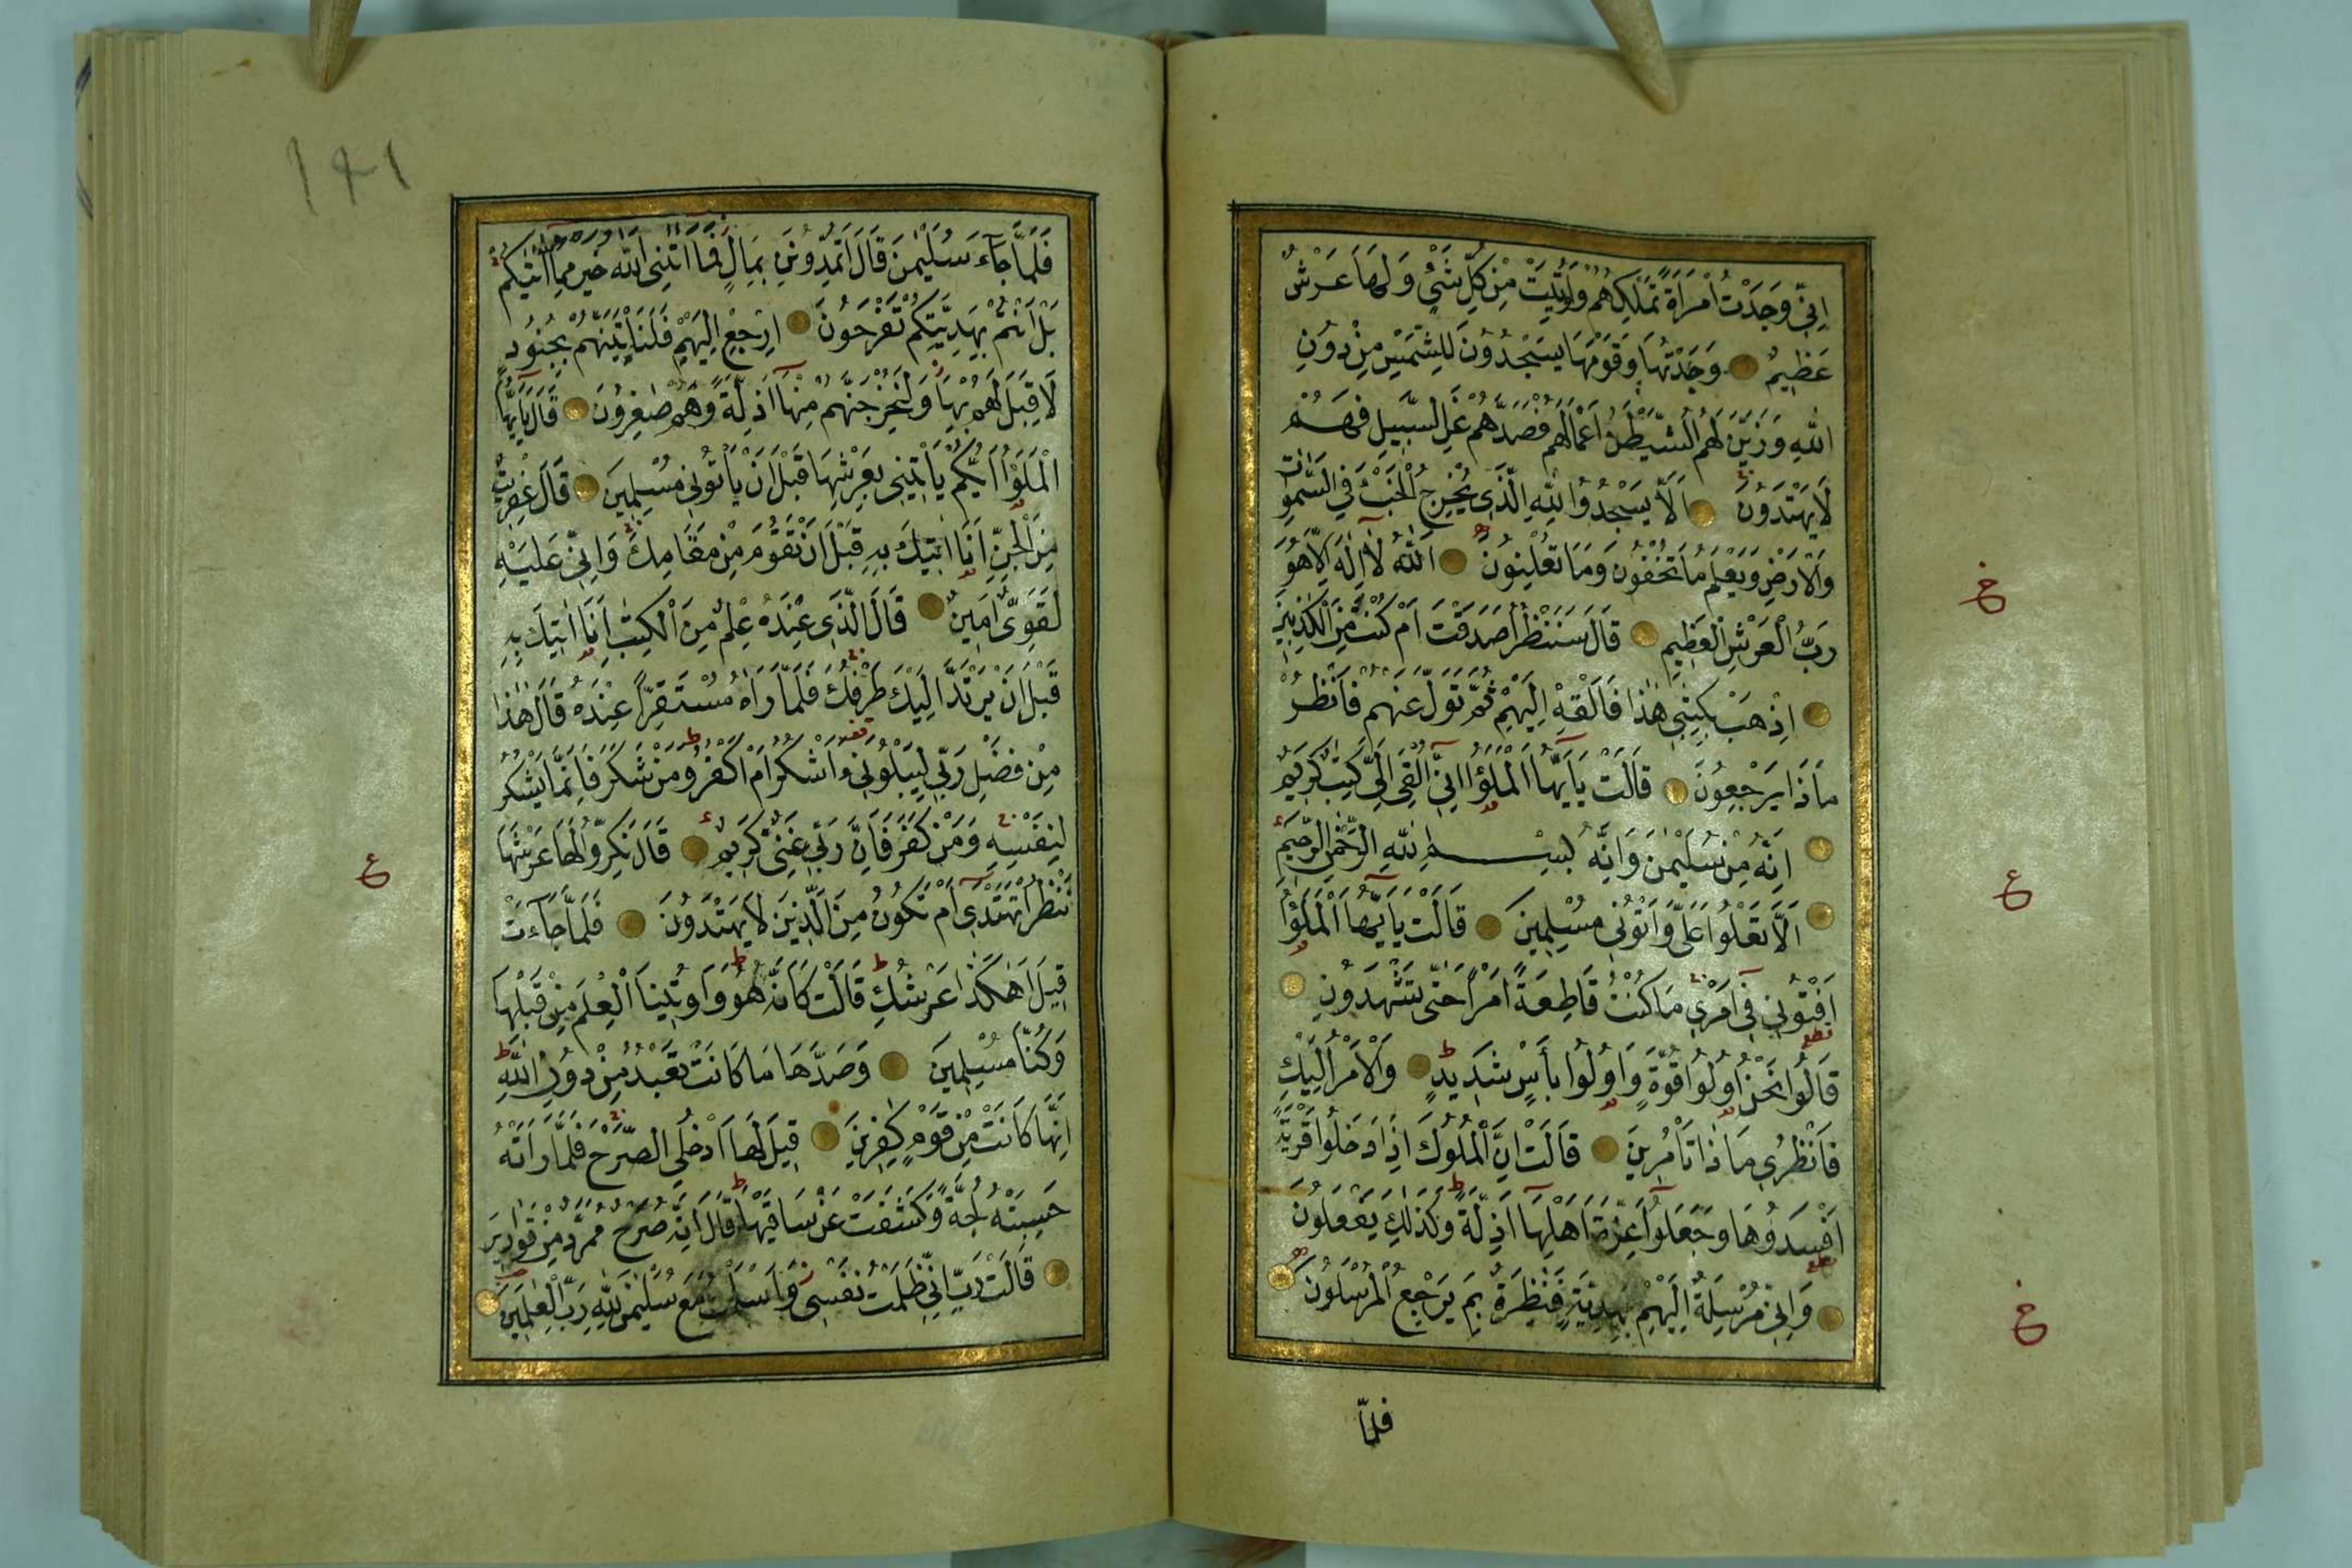 اِنِّي وَجَدْتُ امْرَاَةً تَمْلِكُهُمْ وَاُوتِيَتْ مِنْ كُلِّ شَيْءٍ وَلَهَا عَرْشٌ
عَظِيمٌ وَجَدْتُهَا وَقَوْمَهَا يَسْجُدُونَ لِلشَّمْسِ مِنْ دُونِ
اللّٰهِ وَزَيَّنَ لَهُمُ الشَّيْطٰنُ اَعْمَالَهُمْ فَصَدَّهُمْ عَنِ السَّبِيلِ فَهُمْ
لَا يَهْتَدُونَ اَلَّا يَسْجُدُوا لِلّٰهِ الَّذِي يُخْرِجُ الْخَبْءَ فِي السَّمٰوَاتِ
وَالْاَرْضِ وَيَعْلَمُ مَا تُخْفُونَ وَمَا تُعْلِنُونَ اَللّٰهُ لَا اِلٰهَ اِلَّا هُوَ
رَبُّ الْعَرْشِ الْعَظِيمِ قَالَ سَنَنْظُرُ اَصَدَقْتَ اَمْ كُنْتَ مِنَ الْكَاذِبِينَ
اِذْهَبْ بِكِتٰبِي هٰذَا فَاَلْقِهْ اِلَيْهِمْ ثُمَّ تَوَلَّ عَنْهُمْ فَانْظُرْ
مَاذَا يَرْجِعُونَ قَالَتْ يَا اَيُّهَا الْمَلَؤُا اِنِّي اُلْقِيَ اِلَيَّ كِتٰبٌ كَرِيمٌ
اِنَّهُ مِنْ سُلَيْمٰنَ وَاِنَّهُ بِسْمِ اللّٰهِ الرَّحْمٰنِ الرَّحِيمِ
اَلَّا تَعْلُوا عَلَيَّ وَاْتُونِي مُسْلِمِينَ قَالَتْ يَا اَيُّهَا الْمَلَؤُا
اَفْتُونِي فِي اَمْرِي مَا كُنْتُ قَاطِعَةً اَمْرًا حَتّٰى تَشْهَدُونِ
قَالُوا نَحْنُ اُولُوا قُوَّةٍ وَاُولُوا بَأْسٍ شَدِيدٍ وَالْاَمْرُ اِلَيْكِ
فَانْظُرِي مَاذَا تَأْمُرِينَ قَالَتْ اِنَّ الْمُلُوكَ اِذَا دَخَلُوا قَرْيَةً
اَفْسَدُوهَا وَجَعَلُوا اَعِزَّةَ اَهْلِهَا اَذِلَّةً وَكَذٰلِكَ يَفْعَلُونَ
وَاِنِّي مُرْسِلَةٌ اِلَيْهِمْ بِهَدِيَّةٍ فَنَاظِرَةٌ بِمَ يَرْجِعُ الْمُرْسَلُونَ
فلمّا
خ
ع
خ
١٤١
فَلَمَّا جَاءَ سُلَيْمٰنَ قَالَ اَتُمِدُّونَنِ بِمَالٍ فَمَا اٰتٰنِيَ اللّٰهُ خَيْرٌ مِمَّا اٰتٰيكُمْ
بَلْ اَنْتُمْ بِهَدِيَّتِكُمْ تَفْرَحُونَ اِرْجِعْ اِلَيْهِمْ فَلَنَأْتِيَنَّهُمْ بِجُنُودٍ
لَا قِبَلَ لَهُمْ بِهَا وَلَنُخْرِجَنَّهُمْ مِنْهَا اَذِلَّةً وَهُمْ صٰغِرُونَ قَالَ يَا اَيُّهَا
الْمَلَؤُا اَيُّكُمْ يَأْتِينِي بِعَرْشِهَا قَبْلَ اَنْ يَأْتُونِي مُسْلِمِينَ قَالَ عِفْرِيتٌ
مِنَ الْجِنِّ اَنَا اٰتِيكَ بِهِ قَبْلَ اَنْ تَقُومَ مِنْ مَقَامِكَ وَاِنِّي عَلَيْهِ
لَقَوِيٌّ اَمِينٌ قَالَ الَّذِي عِنْدَهُ عِلْمٌ مِنَ الْكِتٰبِ اَنَا اٰتِيكَ بِهِ
قَبْلَ اَنْ يَرْتَدَّ اِلَيْكَ طَرْفُكَ فَلَمَّا رَاٰهُ مُسْتَقِرًّا عِنْدَهُ قَالَ هٰذَا
مِنْ فَضْلِ رَبِّي لِيَبْلُوَنِي ءَاَشْكُرُ اَمْ اَكْفُرُ وَمَنْ شَكَرَ فَاِنَّمَا يَشْكُرُ
لِنَفْسِهِ وَمَنْ كَفَرَ فَاِنَّ رَبِّي غَنِيٌّ كَرِيمٌ قَالَ نَكِّرُوا لَهَا عَرْشَهَا
نَنْظُرْ اَتَهْتَدِي اَمْ تَكُونُ مِنَ الَّذِينَ لَا يَهْتَدُونَ فَلَمَّا جَاءَتْ
قِيلَ اَهٰكَذَا عَرْشُكِ قَالَتْ كَاَنَّهُ هُوَ وَاُوتِينَا الْعِلْمَ مِنْ قَبْلِهَا
وَكُنَّا مُسْلِمِينَ وَصَدَّهَا مَا كَانَتْ تَعْبُدُ مِنْ دُونِ اللّٰهِ
اِنَّهَا كَانَتْ مِنْ قَوْمٍ كٰفِرِينَ قِيلَ لَهَا ادْخُلِي الصَّرْحَ فَلَمَّا رَاَتْهُ
حَسِبَتْهُ لُجَّةً وَكَشَفَتْ عَنْ سَاقَيْهَا قَالَ اِنَّهُ صَرْحٌ مُمَرَّدٌ مِنْ قَوَارِيرَ
قَالَتْ رَبِّ اِنِّي ظَلَمْتُ نَفْسِي وَاَسْلَمْتُ مَعَ سُلَيْمٰنَ لِلّٰهِ رَبِّ الْعٰلَمِينَ
ع